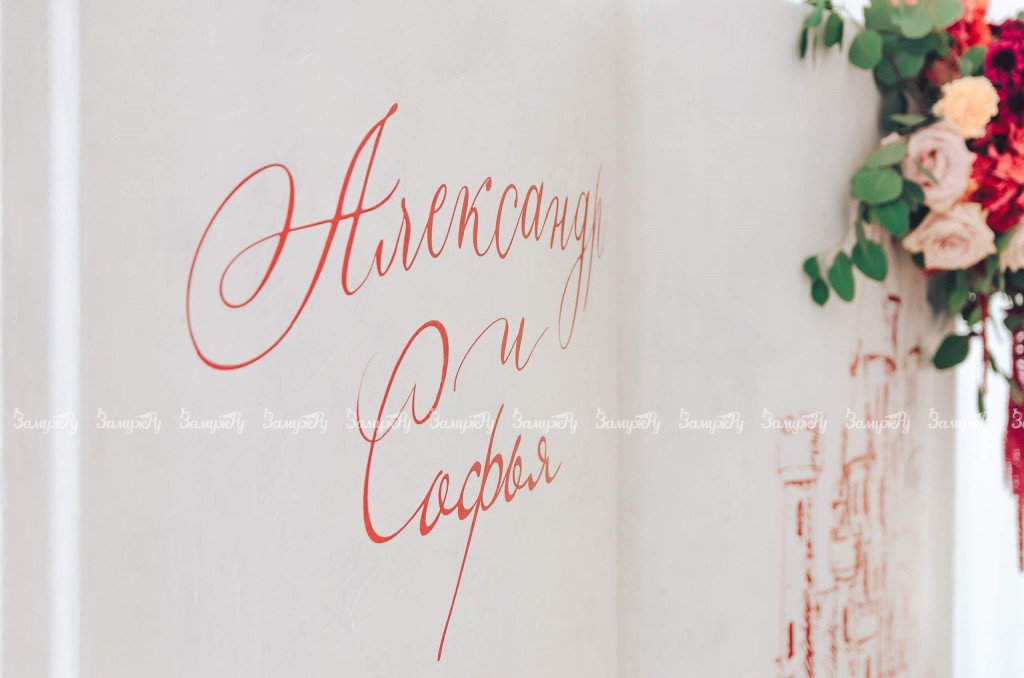 Александр
и
Софья
ЗамужRу ЗамужRу ЗамужRу ЗамужRу ЗамужRу ЗамужRу ЗамужRу ЗамужRу ЗамужRу ЗамужRу ЗамужRу ЗамужRу